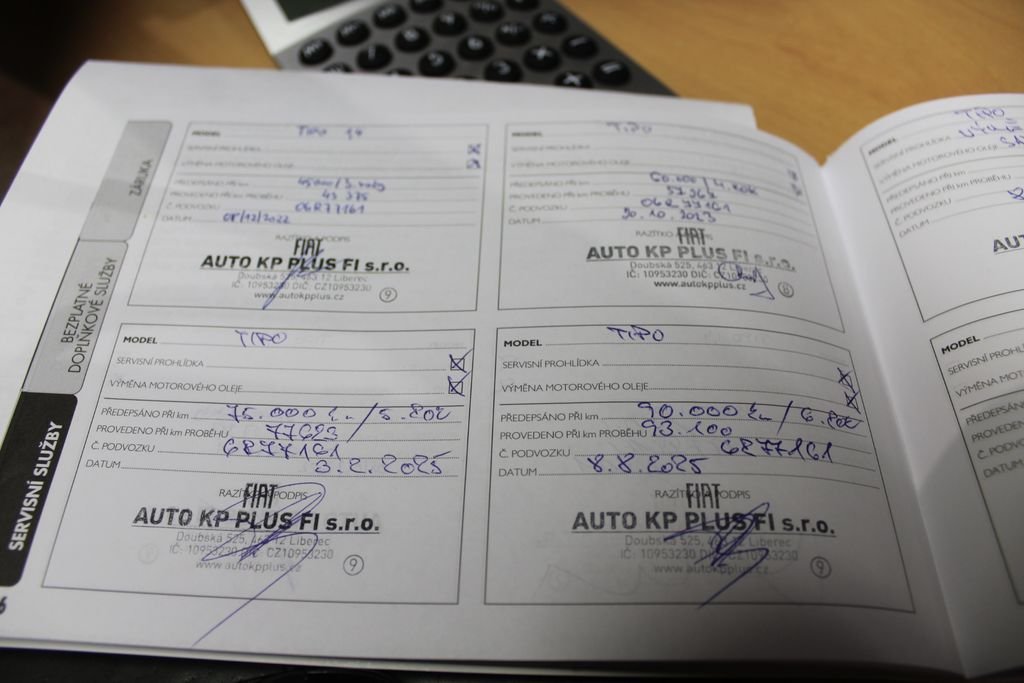 ZÁRUKA
BEZPLATNÉ DOPLŇKOVÉ SLUŽBY
SERVISNÍ SLUŽBY
6
MODEL TIPO
SERVISNÍ PROHLÍDKA
VÝMĚNA MOTOROVÉHO OLEJE
PŘEDEPSÁNO PŘI km 45000/3. roky
PROVEDENO PŘI km PROBĚHU 43 375
Č. PODVOZKU 06R77161
DATUM 08/12/2022
RAZÍTKO A PODPIS
FIAT
AUTO KP PLUS FI s.r.o.
Doubská 525, 463 12 Liberec
IČ: 10953230 DIČ: CZ10953230
www.autokpplus.cz
9
MODEL TIPO
SERVISNÍ PROHLÍDKA
VÝMĚNA MOTOROVÉHO OLEJE
PŘEDEPSÁNO PŘI km 60.000/4. rok
PROVEDENO PŘI km PROBĚHU
Č. PODVOZKU 06R77161
DATUM 20.10.2023
RAZÍTKO
FIAT
AUTO KP PLUS FI s.r.o.
Doubská 525, 463
IČ: 10953230 DIČ:
www.autokpplus.cz
8
MODEL TIPO
SERVISNÍ PROHLÍDKA
VÝMĚNA MOTOROVÉHO OLEJE
PŘEDEPSÁNO PŘI km 75.000 km/5.rok
PROVEDENO PŘI km PROBĚHU 77623
Č. PODVOZKU 6R77161
DATUM 3.2.2025
RAZÍTKO A PODPIS
FIAT
AUTO KP PLUS FI s.r.o.
Doubská 525, 463 12 Liberec
IČ: 10953230 DIČ: CZ10953230
www.autokpplus.cz
9
MODEL TIPO
SERVISNÍ PROHLÍDKA
VÝMĚNA MOTOROVÉHO OLEJE
PŘEDEPSÁNO PŘI km 90.000 km/6.rok
PROVEDENO PŘI km PROBĚHU 93.100
Č. PODVOZKU 6R77161
DATUM 8.8.2025
RAZÍTKO A PODPIS
FIAT
AUTO KP PLUS FI s.r.o.
Doubská 525, 463 12 Liberec
IČ: 10953230 DIČ: CZ10953230
www.autokpplus.cz
9
MODEL TIPO
SERVISNÍ PROHLÍDKA
VÝMĚNA MOTOROVÉHO OLEJE
PŘEDEPSÁNO PŘI km
PROVEDENO PŘI km PROBĚHU
Č. PODVOZKU
DATUM
MODEL
SERVISNÍ PROHL
VÝMĚNA MOT
PŘEDEPSÁNO
PROVEDEN
Č. PODVOZ
DATUM